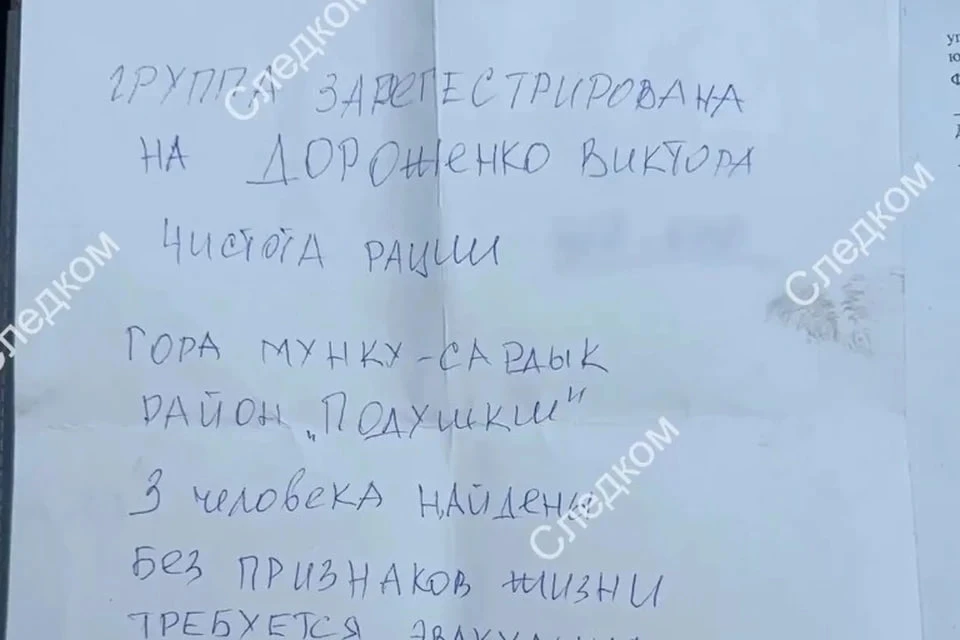 ГРУППА ЗАРЕГЕСТРИРОВАНА
НА ДОРОЖЕНКО ВИКТОРА
ЧИСТОТА РАЦИИ
ГОРА МУНКУ-САРДЫК
РАЙОН „ПОДУШКИ"
3 человека НАЙДЕНЫ
БЕЗ ПРИЗНАКОВ ЖИЗНИ
ТРЕБУЕТСЯ
Следком
Следком
Следком
Следком